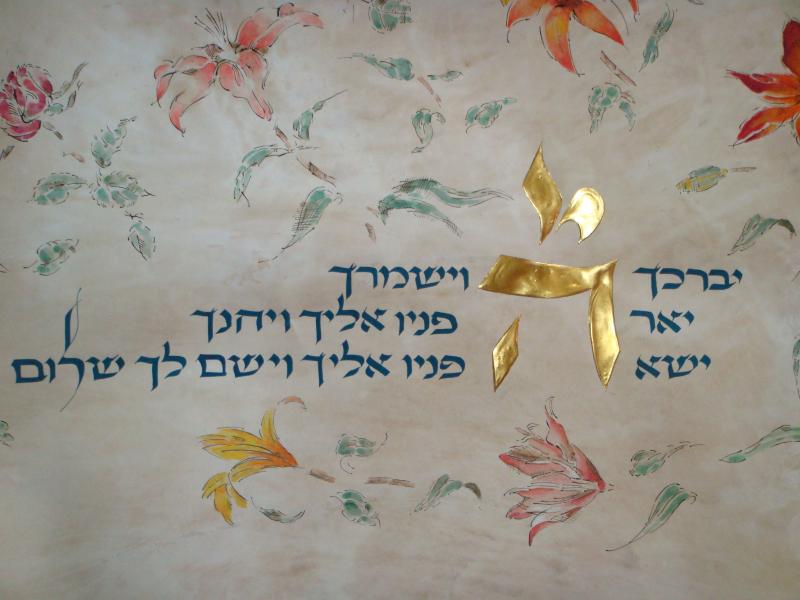 יברכך ה' וישמרך
יאר פניו אליך ויחנך
ישא פניו אליך וישם לך שלום